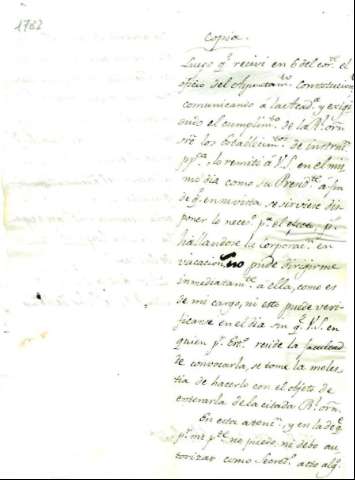 1782
Copia.
Luego q.e recivi en 6 del cor.te el
oficio del Ayuntam.to Constitucion.l
comunicando á la Acad.a y exigi
endo el cumplim.to de la R.l orn.
sre los Establecim.tos de instruc.n
pp.ca lo remití á V.S. en el mis
mo dia como su Presid.te á fin
de q.e en su vista se sirviese dis
poner lo neces.o p.a el efecto, p.s
hallandose la Corporac.n en
vacacion no pude dirigirme
inmediatam.te á ella, como es
de mi cargo, ni esto puede veri
ficarse en el dia sin q.e V.S. en
quien p.r Est.s reside la facultad
de convocarla, se tome la moles
tia de hacerlo con el objeto de
enterarla de la citada R.l orn.
En esta atenc.n, y en la de q.e
p.r mi p.te no puedo ni debo au
torizar como Secret.o acto alg.o